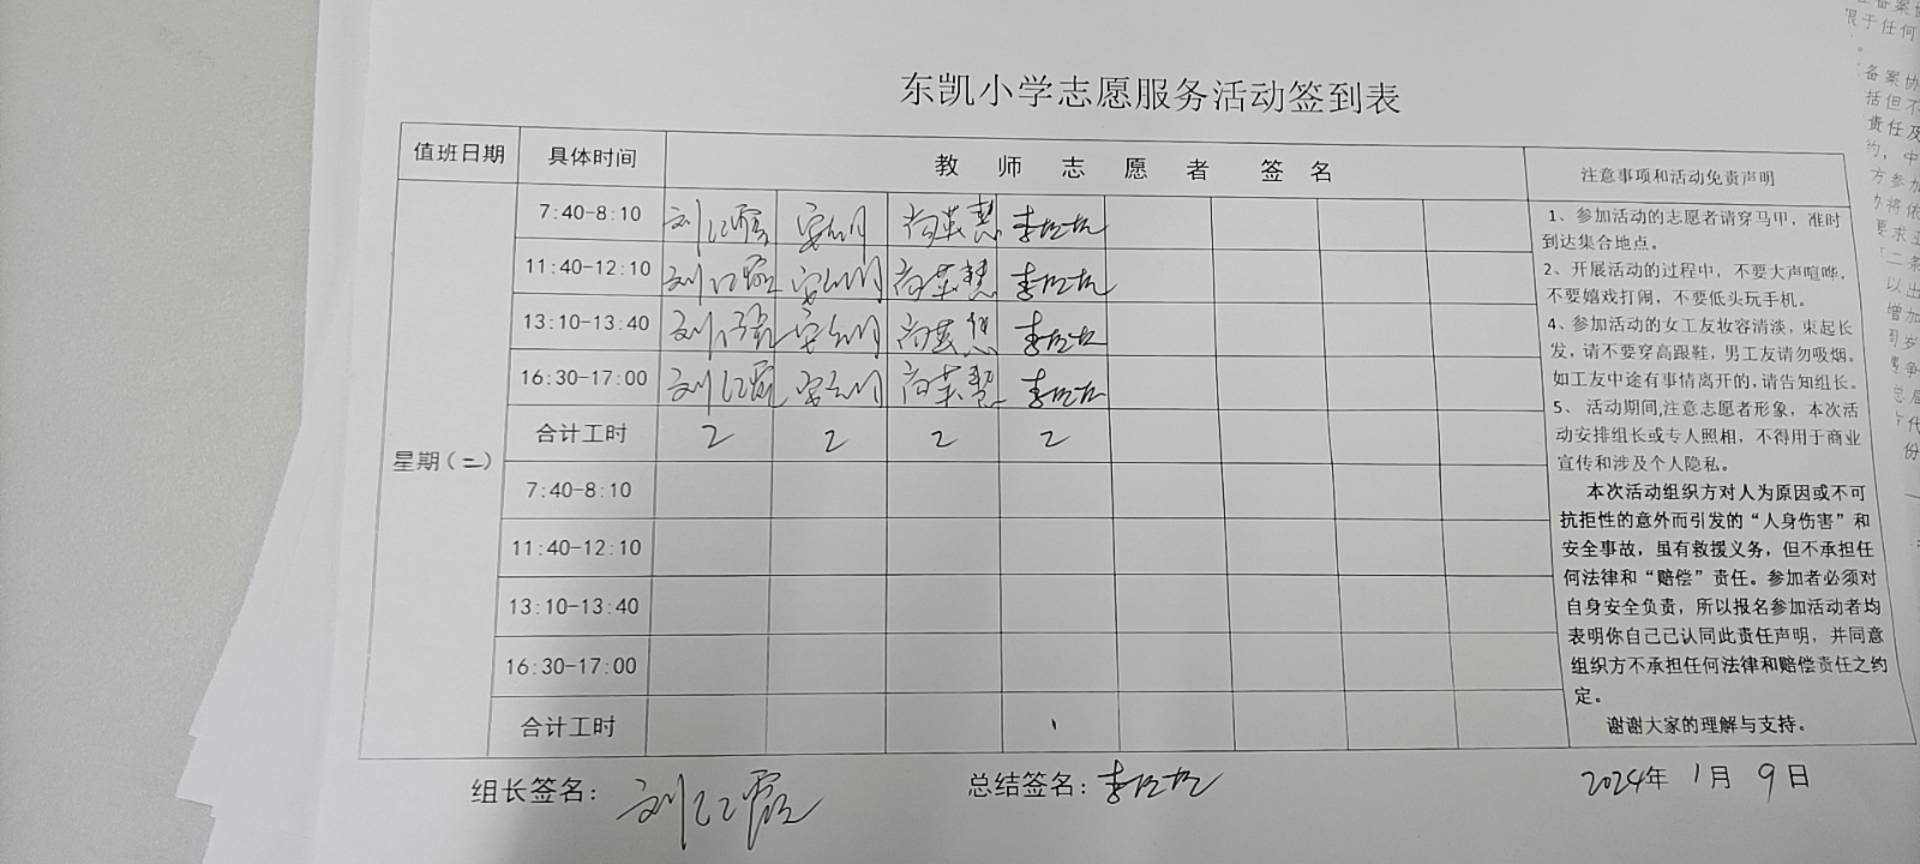 东凯小学志愿服务活动签到表
值班日期 具体时间 教师志愿者签名 注意事项和活动免责声明
星期(二)
7:40-8:10 刘红霞 尚英慧
11:40-12:10 刘红霞 尚英慧
13:10-13:40 刘红霞 尚英慧
16:30-17:00 刘红霞 尚英慧
合计工时 2 2 2 2
7:40-8:10
11:40-12:10
13:10-13:40
16:30-17:00
合计工时
1、参加活动的志愿者请穿马甲，准时
到达集合地点。
2、开展活动的过程中，不要大声喧哗，
不要嬉戏打闹，不要低头玩手机。
4、参加活动的女工友妆容清淡，束起长
发，请不要穿高跟鞋，男工友请勿吸烟。
如工友中途有事情离开的,请告知组长。
5、 活动期间,注意志愿者形象，本次活
动安排组长或专人照相，不得用于商业
宣传和涉及个人隐私。
本次活动组织方对人为原因或不可
抗拒性的意外而引发的“人身伤害”和
安全事故，虽有救援义务，但不承担任
何法律和“赔偿”责任。参加者必须对
自身安全负责，所以报名参加活动者均
表明你自己己认同此责任声明，并同意
组织方不承担任何法律和赔偿责任之约
定。
谢谢大家的理解与支持。
组长签名：刘红霞 总结签名： 2024年 1月 9日
限于任何
备案协
括但不
责任及
约，中
方参加